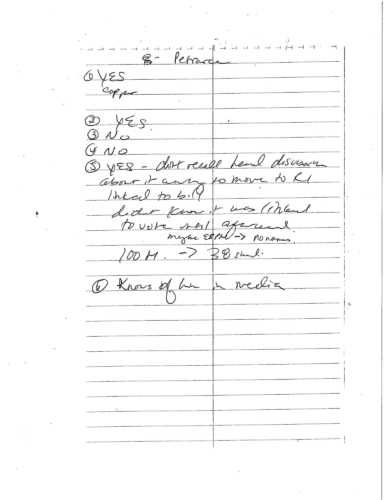 8- Petrarca
① YES
Copper
② YES
③ NO
④ NO
⑤ YES - don't recall
about it to move to RI
linked to bill
didn't know it was linked
to vote until
maybe ESPN -> no names.
100 M. -> 38
⑥ Knows of in media